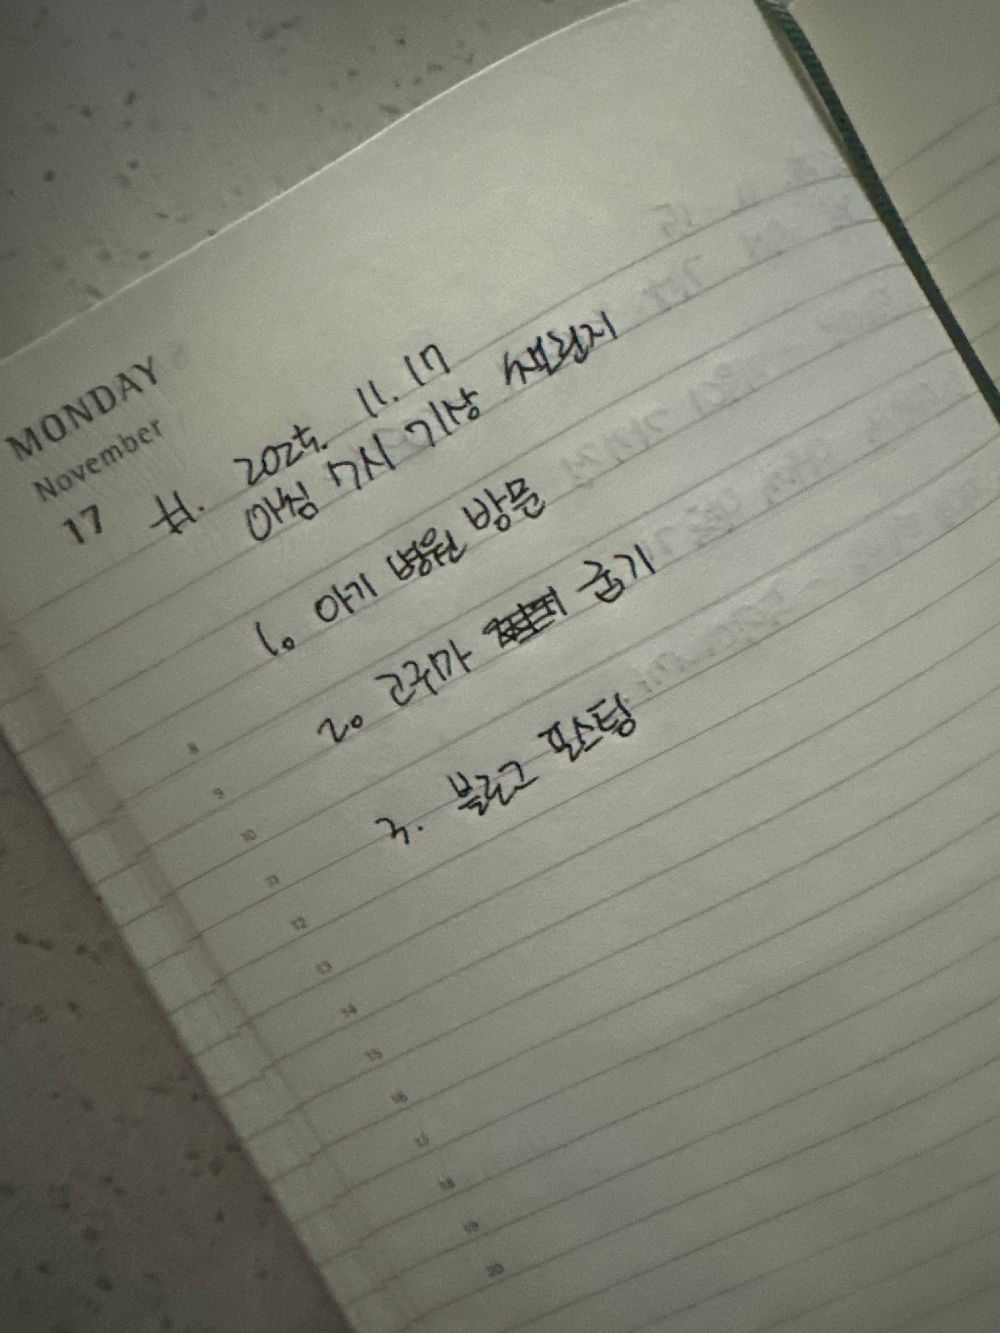 MONDAY
November
17
#. 2025. 11. 17
아침 7시 기상
1. 아기 병원 방문
2. 고구마 굽기
3. 블로그 포스팅
8
9
10
11
12
13
14
15
16
17
18
19
20